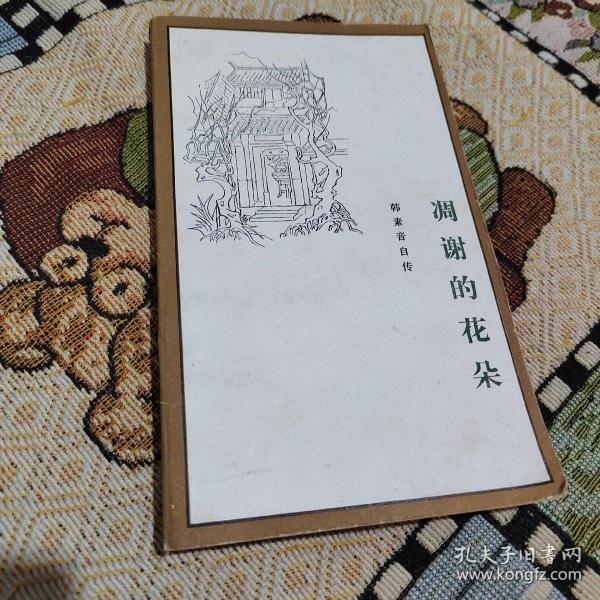 凋谢的花朵
韩素音自传
孔夫子旧書网
www.kongfz.com